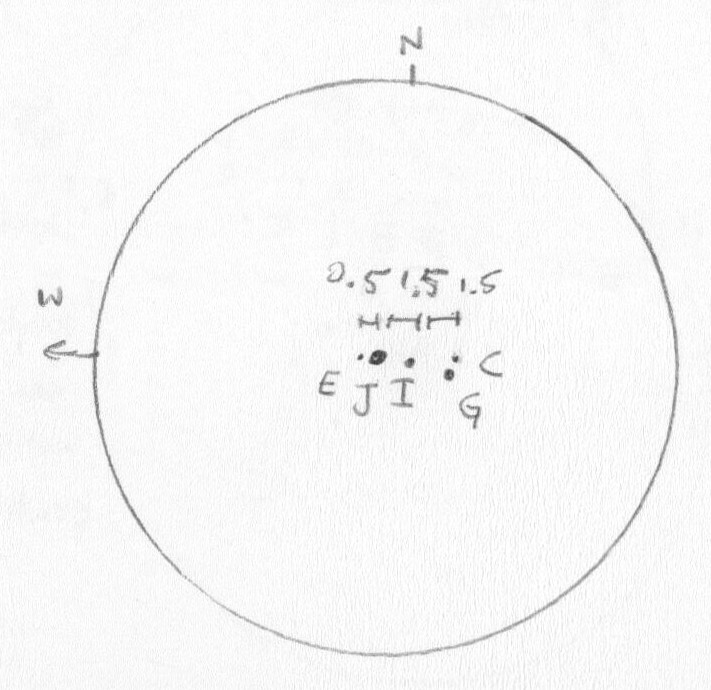 N
W
0.5 1.5 1.5
E J I C
G